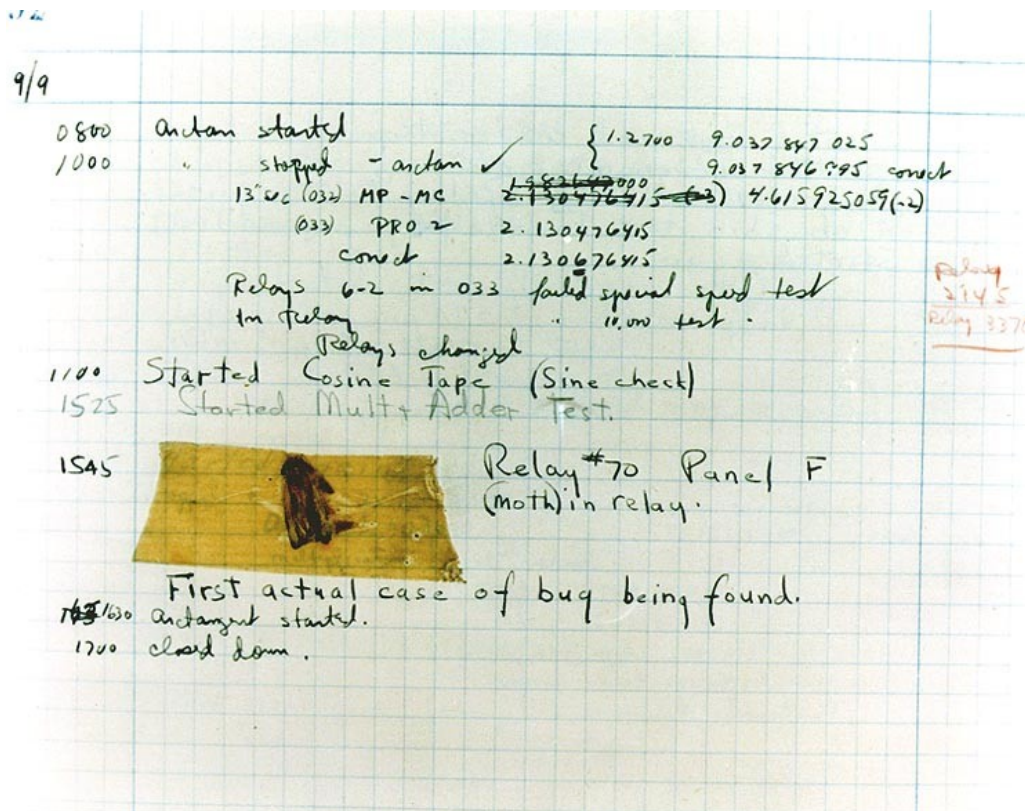 9/9
0800 arctan started { 1.2700 9.037 847 025
1000 " stopped - arctan ✓ 9.037 846 795 correct
13"sec (032) MP - MC 2.130476415 (-3) 4.615925059(-2)
(033) PRO 2 2.130476415
correct 2.130676415
Relays 6-2 in 033 failed special speed test
In Relay " 10,000 test.
Relay
2145
Relay 3370
Relays changed
1100 Started Cosine Tape (Sine check)
1525 Started Mult + Adder Test.
1545 Relay #70 Panel F
(moth) in relay.
First actual case of bug being found.
1630 arctangent started.
1700 closed down.